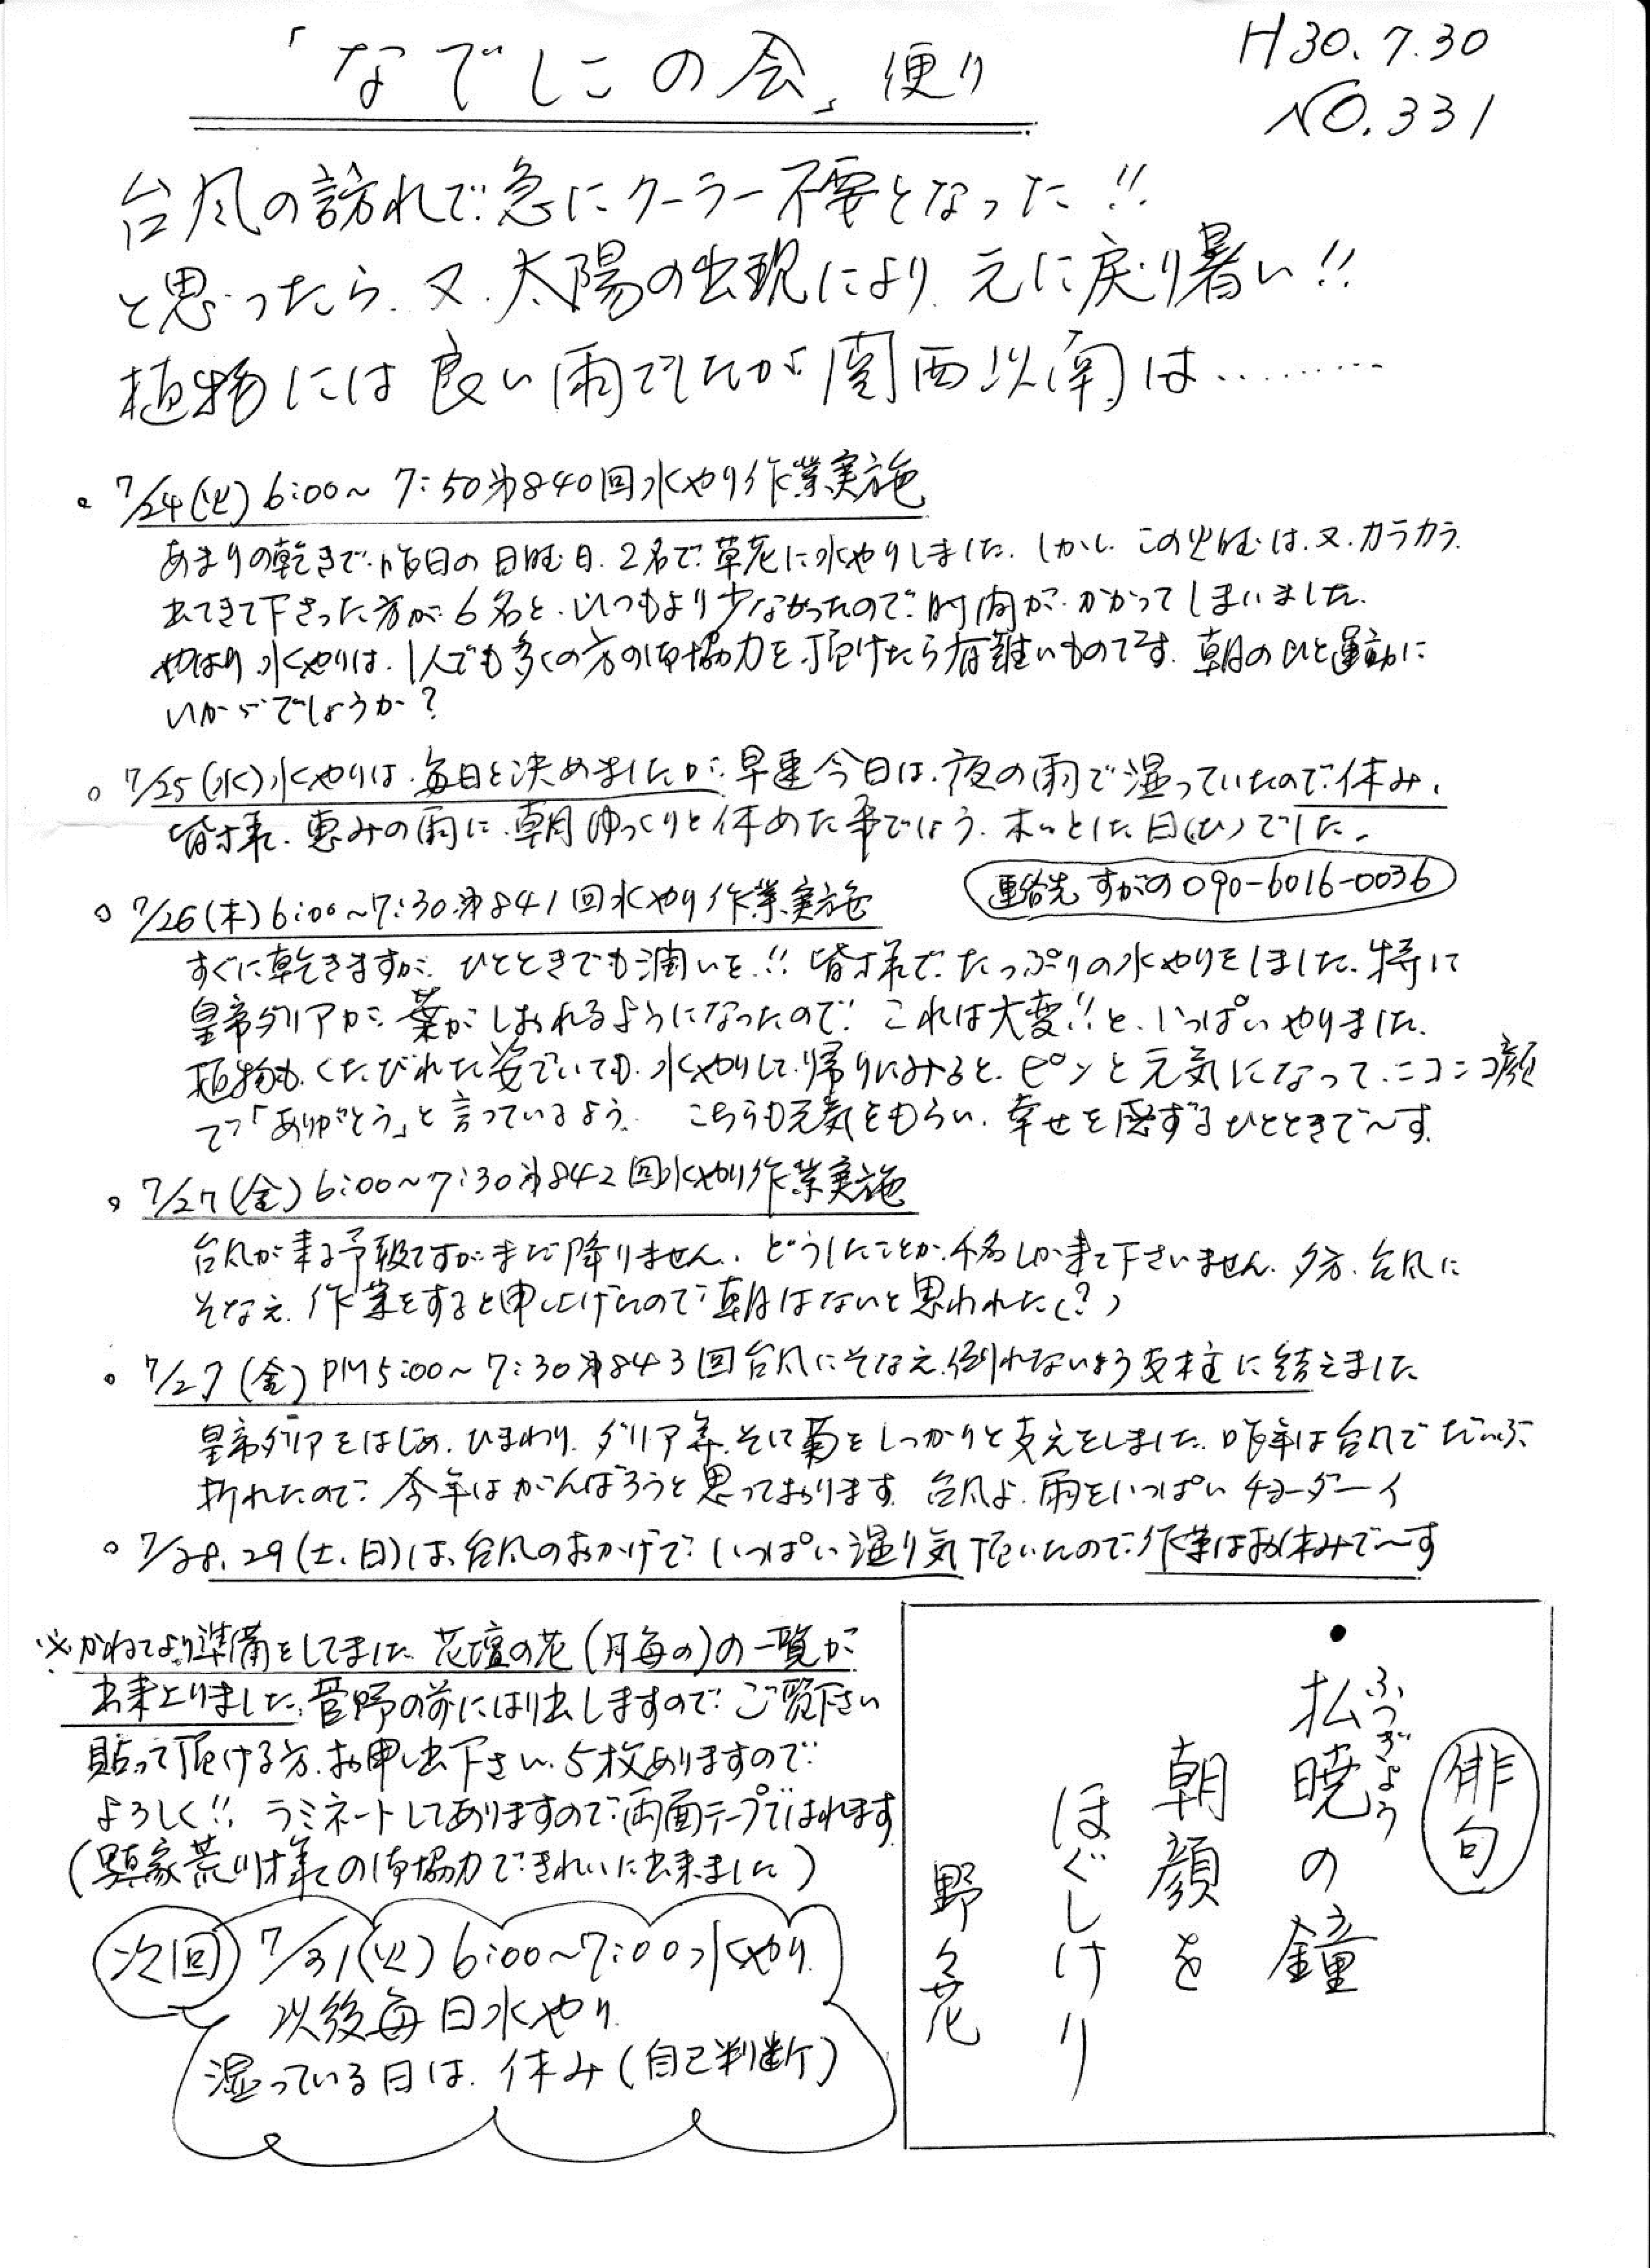 「なでしこの会」便り
H30.7.30
NO.331
台風の訪れで急にクーラー不要となった!!
と思ったら、又、太陽の出現により、元に戻り暑い!!
植物には良い雨でしたが関西以南は………
。7/24(火)6:00〜7:50第840回水やり作業実施
あまりの乾きで、昨日の日曜日、2名で草花に水やりしました。しかし、この火曜は、又、カラカラ
出てきて下さった方が6名と、いつもより少なかったので時間が、かかってしまいました。
やはり水やりは、1人でも多くの方の御協力を頂けたら有難いものです。朝のひと運動に
いかがでしょうか?
。7/25(水)水やりは、毎日と決めましたが、早速今日は、夜の雨で湿っていたので休み。
皆様、恵みの雨に、朝ゆっくりと休めた事でしょう。ホッとした日(ひ)でした。
連絡先 すがの090-6016-0036
。7/26(木)6:00〜7:30第841回水やり作業実施
すぐに乾きますが、ひとときでも潤いを!!皆様で、たっぷりの水やりをしました。特に
皇帝ダリアが葉がしおれるようになったので、これは大変!!と、いっぱいやりました。
植物も、くたびれた姿でいても、水やりして帰りにみると、ピンと元気になって、ニコニコ顔
で「ありがとう」と言っているよう。こちらも元気をもらい、幸せを感ずるひとときで〜す。
。7/27(金)6:00〜7:30第842回水やり作業実施
台風が来る予報ですがまだ降りません。どうしたことか、4名しか来て下さいません。夕方、台風に
そなえ、作業をすると申し上げたので朝はないと思われた(?)
。7/27(金)PM5:00〜7:30第843回台風にそなえ、倒れないよう支柱に結えました
皇帝ダリアをはじめ、ひまわり、ダリア等、そして菊をしっかりと支えをしました。昨年は台風でだいぶ
折れたので、今年はがんばろうと思っております。台風よ、雨をいっぱいチョーダーイ
。7/28、29(土、日)は、台風のおかげで、いっぱい湿り気頂いたので、作業はお休みで〜す
※かねてより準備をしてました花壇の花(月毎の)の一覧が
出来上りました。菅野の前にはり出しますので、ご覧下さい
貼って頂ける方、お申し出下さい。5枚ありますので
よろしく!!ラミネートしてありますので、両面テープではれます
(顕家荒川様の御協力できれいに出来ました)
次回 7/31(火)6:00〜7:00水やり
以後毎日水やり
湿っている日は、休み(自己判断)
俳句
●払暁の鐘
ふつぎょう
朝顔を
ほぐしけり
野々花